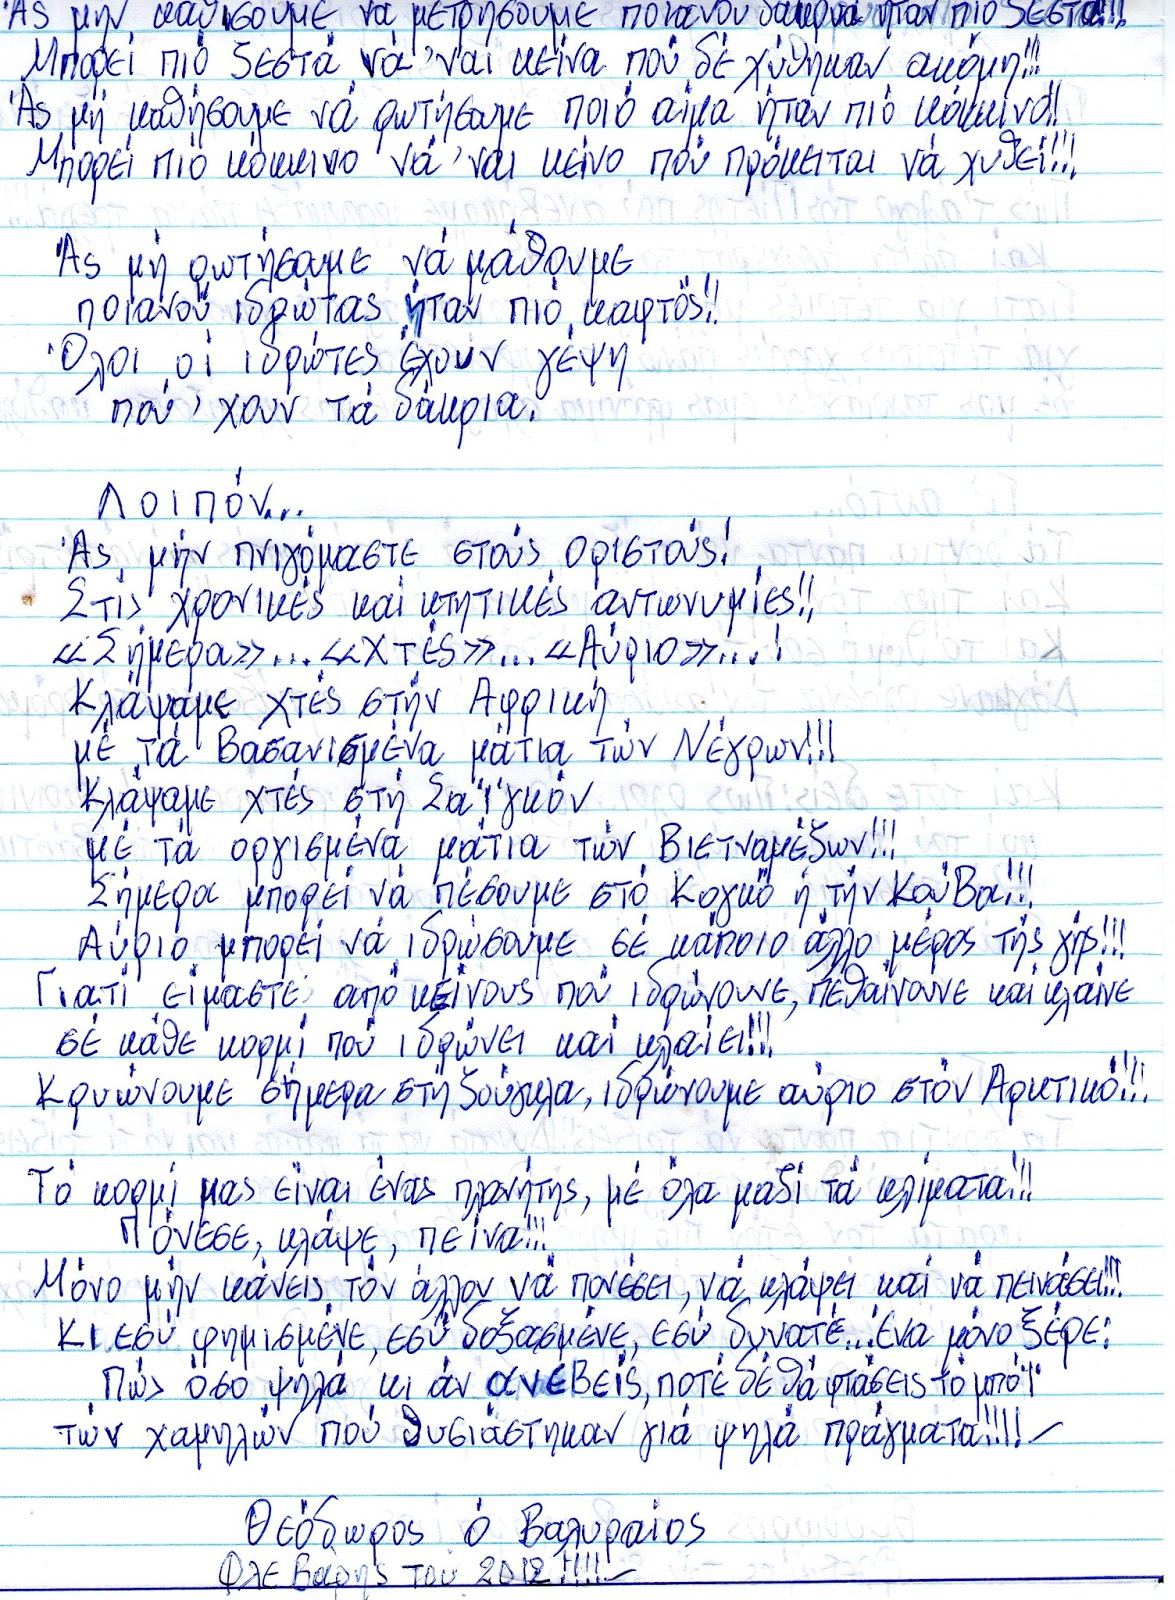 Ἄς μήν καθήσουμε νά μετρήσουμε ποιανού δάκρυα ήταν πιό ζεστά!!!
Μπορεί πιό ζεστά νά 'ναι κείνα πού δέ χύθηκαν ακόμη!!!
Ἄς μή καθήσουμε νά ρωτήσουμε ποιό αίμα ήταν πιό κόκκινο!!
Μπορεί πιό κόκκινο νά 'ναι κείνο πού πρόκειται νά χυθεί!!!
Ἄς μή ρωτήσουμε νά μάθουμε
ποιανού ιδρώτας ήταν πιό καφτός!!
Ὅλοι οι ιδρώτες έχουν γέψη
πού 'χουν τά δάκρια.
Λοιπόν...
Ἄς μήν πνιγόμαστε στούς οριστούς!
Στις χρονικές καί κτητικές αντωνυμίες!!
«Σήμερα»... «Χτές»... «Αύριο»...!
Κλάψαμε χτές στήν Αφρική
μέ τά βασανισμένα μάτια τών Νέγρων!!!
Κλάψαμε χτές στή Σαϊγκόν
μέ τά οργισμένα μάτια τών Βιετναμέζων!!!
Σήμερα μπορεί νά πέσουμε στό Κογκό ή τήν Κούβα!!!
Αύριο μπορεί νά ιδρώσουμε σέ κάποιο άλλο μέρος τής γής!!!
Γιατί είμαστε από κείνους πού ιδρώνουνε, πεθαίνουνε και κλαίνε
σέ κάθε κορμί πού ιδρώνει καί κλαίει!!!
Κρυώνουμε σήμερα στή ζούγκλα, ιδρώνουμε αύριο στόν Αρκτικό!!!
Τό κορμί μας είναι ένας πλανήτης, μέ όλα μαζί τά κλίματα!!!
Πόνεσε, κλάψε, πείνα!!!
Μόνο μήν κάνεις τόν άλλον νά πονέσει, νά κλάψει καί νά πεινάσει!!!
Κι εσύ φημισμένε, εσύ δοξασμένε, εσύ δυνατέ... ένα μόνο ξέρε:
Πώς όσο ψηλά κι άν ανέβεις, ποτέ δέ θά φτάσεις τό μπόϊ
τών χαμηλών πού θυσιάστηκαν γιά ψηλά πράγματα!!!!
Θεόδωρος ό Βαλυραίος
Φλεβάρης του 2012!!!!